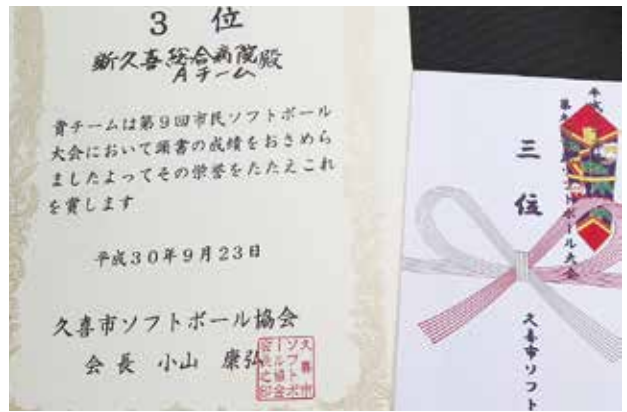 3 位
新久喜総合病院殿
Aチーム
貴チームは第9回市民ソフトボール
大会において頭書の成績をおさめら
れましたよってその栄誉をたたえこれ
を賞します
平成30年9月23日
久喜市ソフトボール協会
会長 小山 康弘
久喜市
ソフトボ
ール協会
会長之印
平成
ソフトボール大会
三位
久喜市ソフト